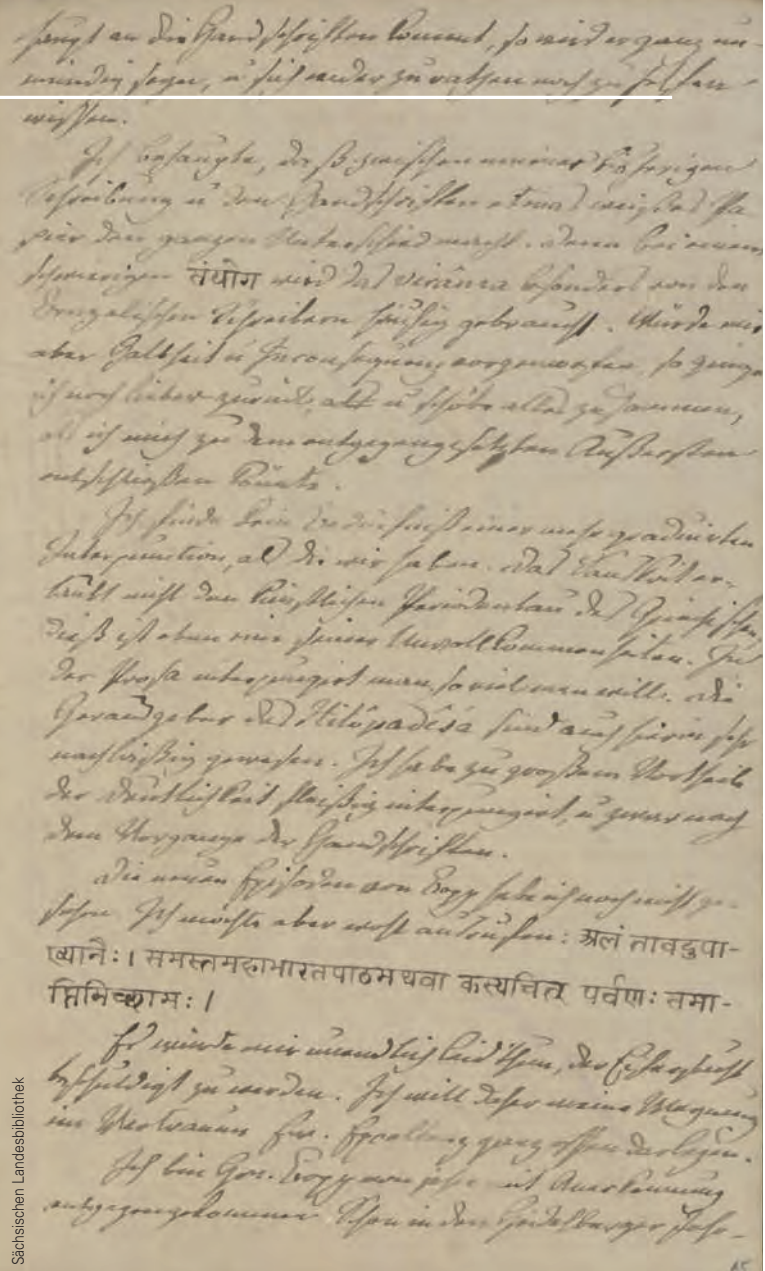 haupt an die Handschriften kommt, so wird er ganz un-
mündig seyn, u sich weder zu rathen noch zu helfen
wissen.
Ich behaupte, daß zwischen meiner bisherigen
Schreibung u den Handschriften etwas weißes Pa-
pier den ganzen Unterschied macht. Denn bei einem
schwierigen संयोग wird das virâma besonders von den
Bengalischen Schreibern häufig gebraucht. Würde mir
aber Halbheit u Inconsequenz vorgeworfen, so ginge
ich noch lieber zurück, u schöbe alles zusammen,
als ich mich zu dem entgegengesetzten Äußersten
entschließen könnte.
Ich finde kein Bedürfniß einer mehr graduirten
Interpunction, als die wir haben. Das Sanskrit er-
laubt nicht den künstlichen Periodenbau des Griechischen,
dieß ist eben eine seiner Unvollkommenheiten. In
der Prosa interpungirt man so viel man will. Die
Herausgeber des Hitôpadêsa sind auch hierin sehr
nachläßig gewesen. Ich habe zu großem Vortheil
der Deutlichkeit fleißig interpungirt, u zwar nach
dem Vorgange der Handschriften.
Die neuen Episoden von Bopp habe ich noch nicht ge-
sehen. Ich möchte aber wohl ausrufen: अलं तावदुपा-
ख्यानैः । समस्तमहाभारतपाठमथवा कस्यचित् पर्वणः समा-
प्तिमिच्छामः ।
Es würde mir unendlich leid thun, der Eifersucht
beschuldigt zu werden. Ich will daher meine Meynung
im Vertrauen Ew. Excellenz ganz offen darlegen.
Ich bin Hrn. Bopp von je mit Anerkennung
entgegengekommen. Schon in den Heidelberger Jahr-
15
Sächsischen Landesbibliothek